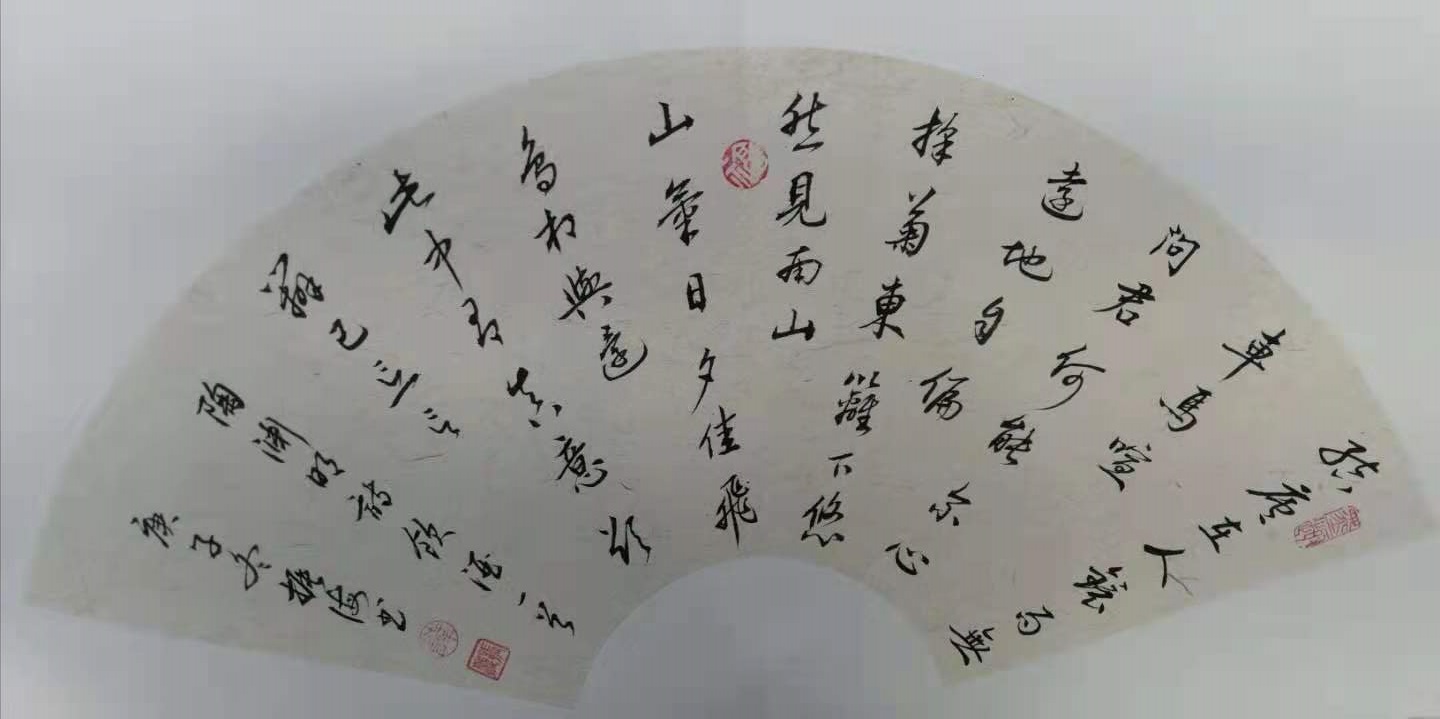 結廬在人境而無
車馬喧
問君何能尔心
遠地自偏
採菊東籬下悠
然見南山
山氣日夕佳飛
鳥相與還
此中有真意欲
辨已忘言
陶渊明詩飲酒一首
庚子冬振海书